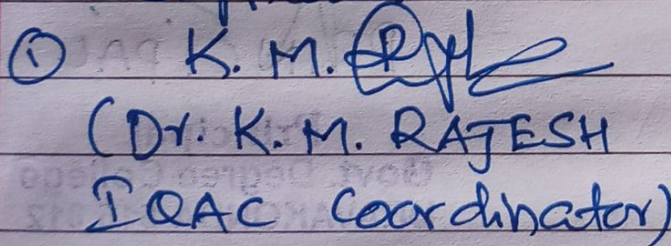 ① K. M. Rajesh
(Dr. K. M. RAJESH
IQAC Coordinator)